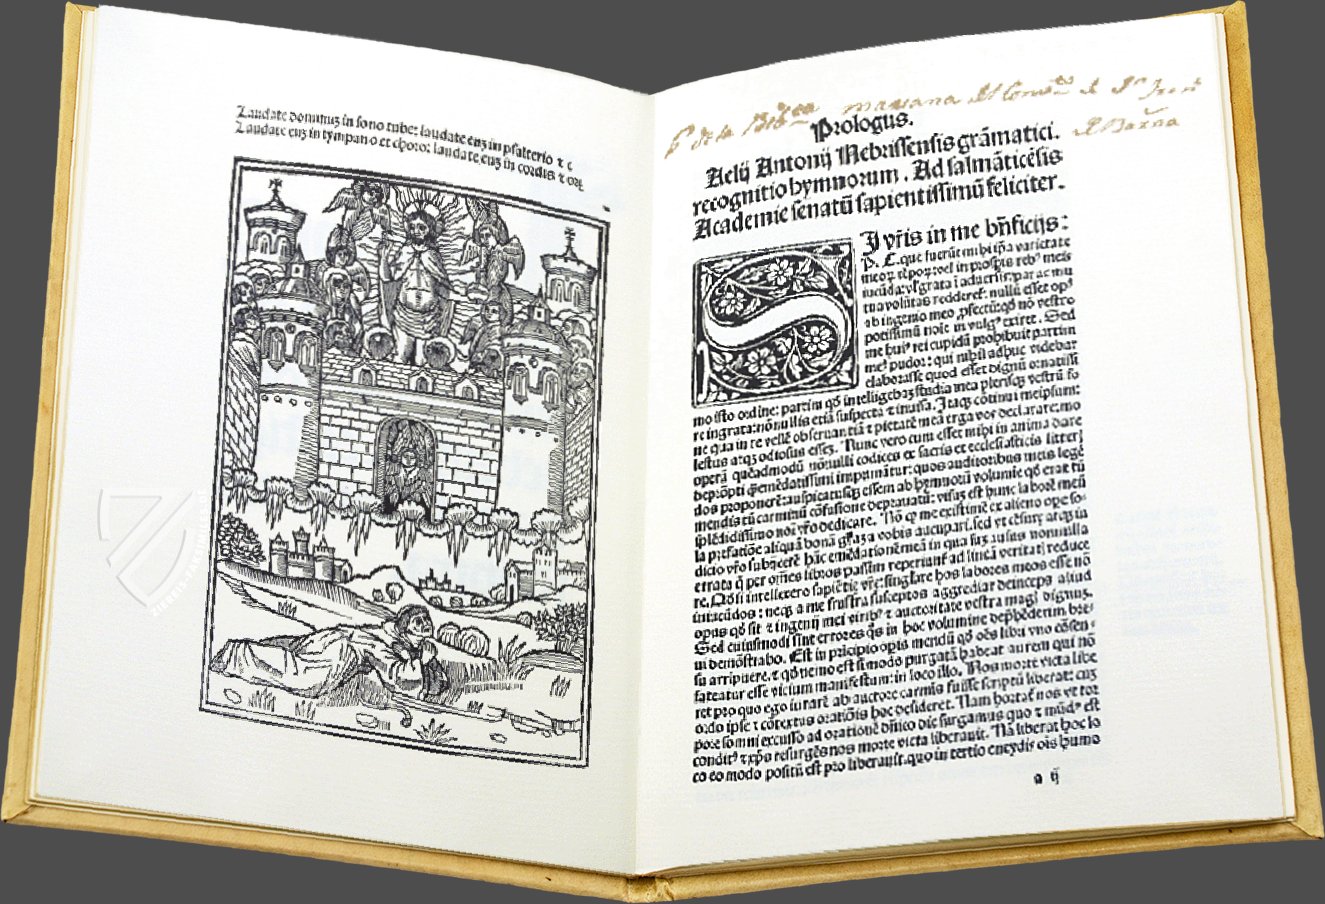 Laudate dominuȝ in sono tube: laudate euȝ in psalterio ⁊ c
Laudate euȝ in tympano et choro: laudate euȝ in cordis ⁊ orḡ
de la Bibca mariana del Convto de Sn
Prologus.
Aelij Antonij Nebrissensis grāmatici.
recognitio hymnorum. Ad salmāticēsis
Academie senatū sapientissimū feliciter.
S
I vr̄is in me bn̄ficijs:
P. C. que fuerūt mihi ip̄a varietate
meoꝝ tēpoꝝ: vel in prosp̄is rebꝰ meis
iucūda: vl̓ grata ī aduersis: par ac mu
tua volūtas redderet: nullū esset opꝰ
ab ingenio meo ꝓfectū: qd̓ nō vestro
potissimū noīe in vulgꝰ exiret. Sed
me huiꝰ rei cupidū prohibuit partim
meꝰ pudor: qui nihil adhuc videbar
elaborasse quod esset dignū ornatissi
mo isto ordine: partim qd̓ intelligebaȝ studia mea plerisqȝ vestrū fo
re ingrata: nōnullis etiā suspecta ⁊ inuisa. Itaqȝ cōtinui meipsum:
ne qua in re vellē obseruantiā ⁊ pietatē meā erga vos declarare: mo
lestus atqȝ odiosus esseȝ. Nunc vero cum esset mihi in animo dare
operā quēadmodū nōnulli codices ex sacris et ecclesiasticis litteꝝ
deprōpti q̄emēdatissimi imprimātur: quos auditoribus meis legē
dos proponerē: auspicatusqȝ essem ab hymnorū volumine qd̓ erat tū
mendis tū carminū cōfusione deprauatū: visus est hunc laborē meū
splēdidissimo noī vr̄o dedicare. Nō q̄ me existimē ex alieno ope so-
la p̄fatiōe aliquā bonā gr̄aȝ a vobis aucupari. sed vt cēsurȩ atqȝ in
dicio vr̄o subijcerē hāc emēdationē meā in qua suȝ ausus nonnulla
errata q̄ per om̄es libros passim reperiunt̄ ad lineā veritatꝭ reduce
re. Qd̓ si intellexero sapiētiȩ vr̄e: singlare hos labores meos esse nō
iniucūdos: neqȝ a me frustra susceptos aggrediar deinceps aliud
opus qd̓ sit ⁊ ingenij mei viribꝰ ⁊ auctoritate vestra magꝭ dignuȝ.
Sed cuiusmodi sint errores q̄s in hoc volumine dep̄hēderim bre-
ui demōstrabo. Est in pricipio opis mendū qd̓ oēs libri vno cōsen-
su arripuere. ⁊ qd̓ nemo est si modo purgatā habeat aurem qui nō
fateatur esse vicium manifestum: in loco illo. Nos morte victa libe
ret pro quo ego iurarē ab auctore carmīs fuisse scriptū liberat: cuȝ
ordo ipse ⁊ cōtextus oratiōis hoc desideret. Nam hortatꝰ nos vt tor
pore somni excusso ad orationē dn̄ico die surgamus quo ⁊ mūdꝰ est
conditꝰ ⁊ xp̄s resurgēs nos morte victa liberauit. Nā liberat hoc lo
co eo modo positū est pro liberauit. quo in tertio eneydis ois humo
a ij